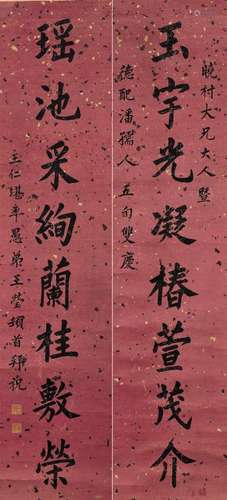 晚村大兄大人暨
玉宇光凝椿萱茂介
德配潘孺人五旬雙慶
瑤池采絢蘭桂敷榮
王仁堪率愚弟王瑩頓首拜祝